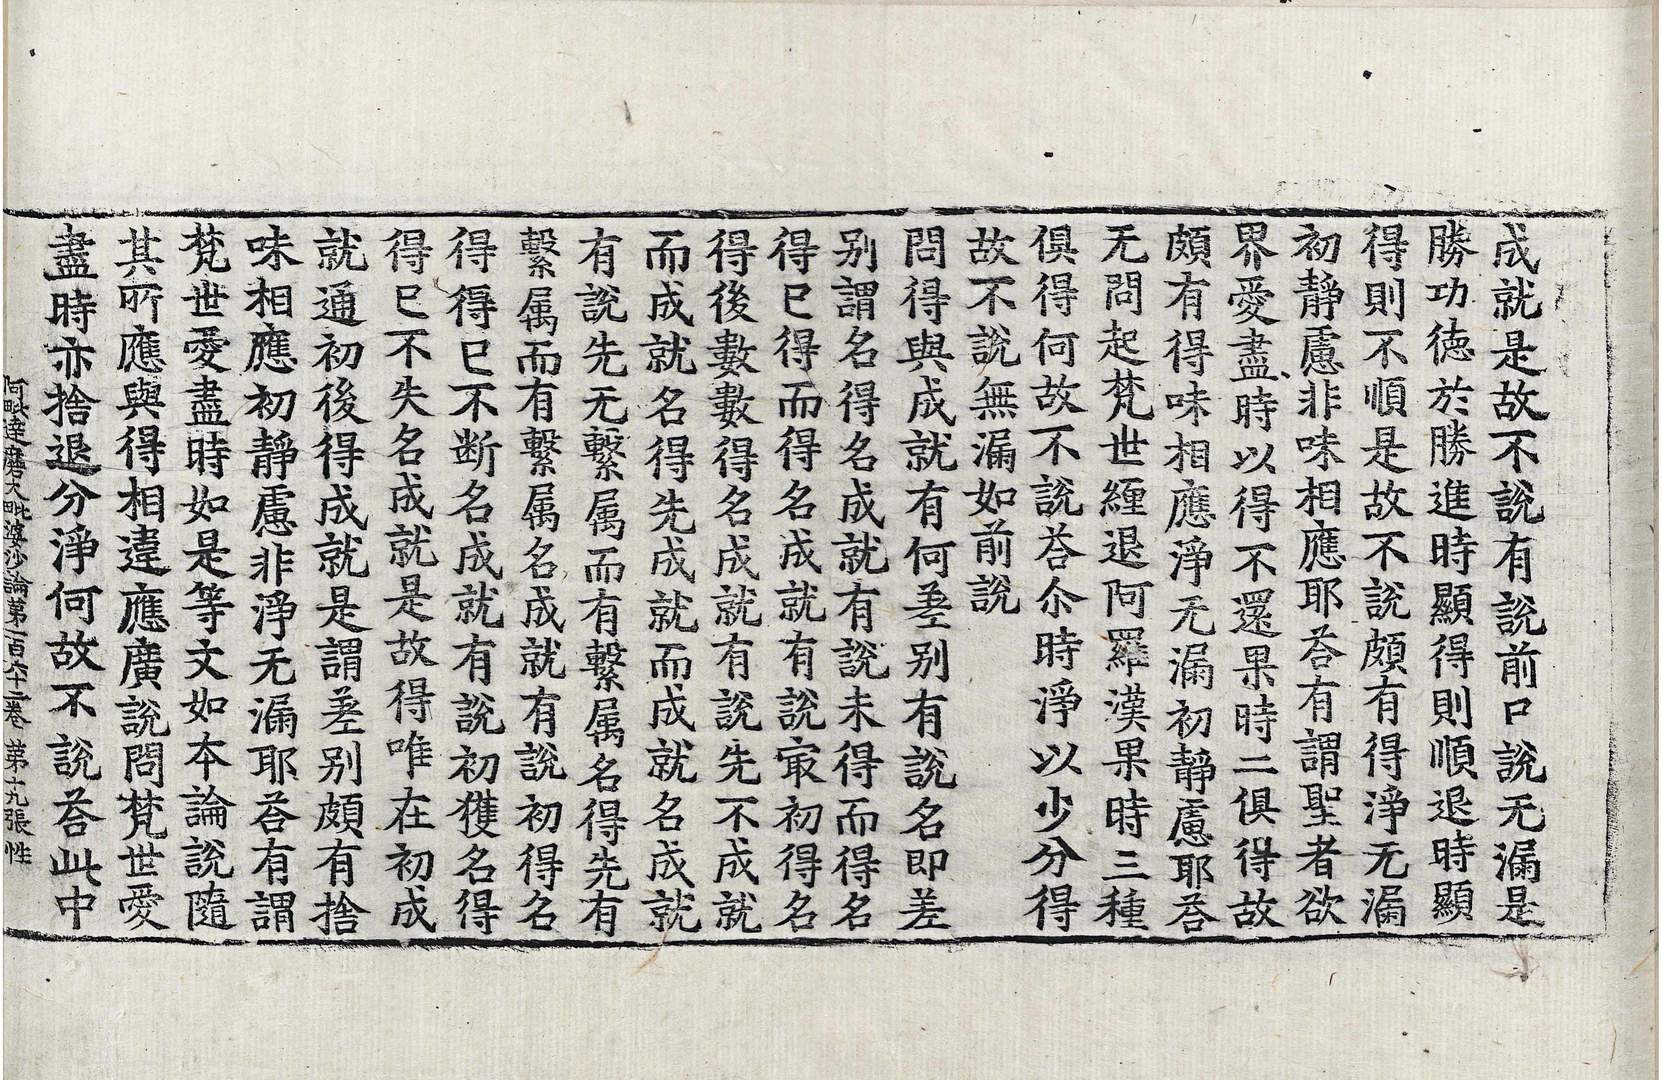 成就是故不說有說前口說无漏是
勝功德於勝進時顯得則順退時顯
得則不順是故不說頗有得淨无漏
初靜慮非味相應耶荅有謂聖者欲
界愛盡時以得不還果時二俱得故
頗有得味相應淨无漏初靜慮耶荅
无問起梵世纏退阿羅漢果時三種
俱得何故不說荅尒時淨以少分得
故不說無漏如前說
問得與成就有何差别有說名即差
别謂名得名成就有說未得而得名
得已得而得名成就有說㝡初得名
得後數數得名成就有說先不成就
而成就名得先成就而成就名成就
有說先无繫属而有繫属名得先有
繫属而有繫属名成就有說初得名
得得已不断名成就有說初獲名得
得已不失名成就是故得唯在初成
就通初後得成就是謂差别頗有捨
味相應初靜慮非淨无漏耶荅有謂
梵世愛盡時如是等文如本論說隨
其所應與得相違應廣說問梵世愛
盡時亦捨退分淨何故不說荅此中
阿毗達磨大毗婆沙論第一百六十二卷 第十九張 性